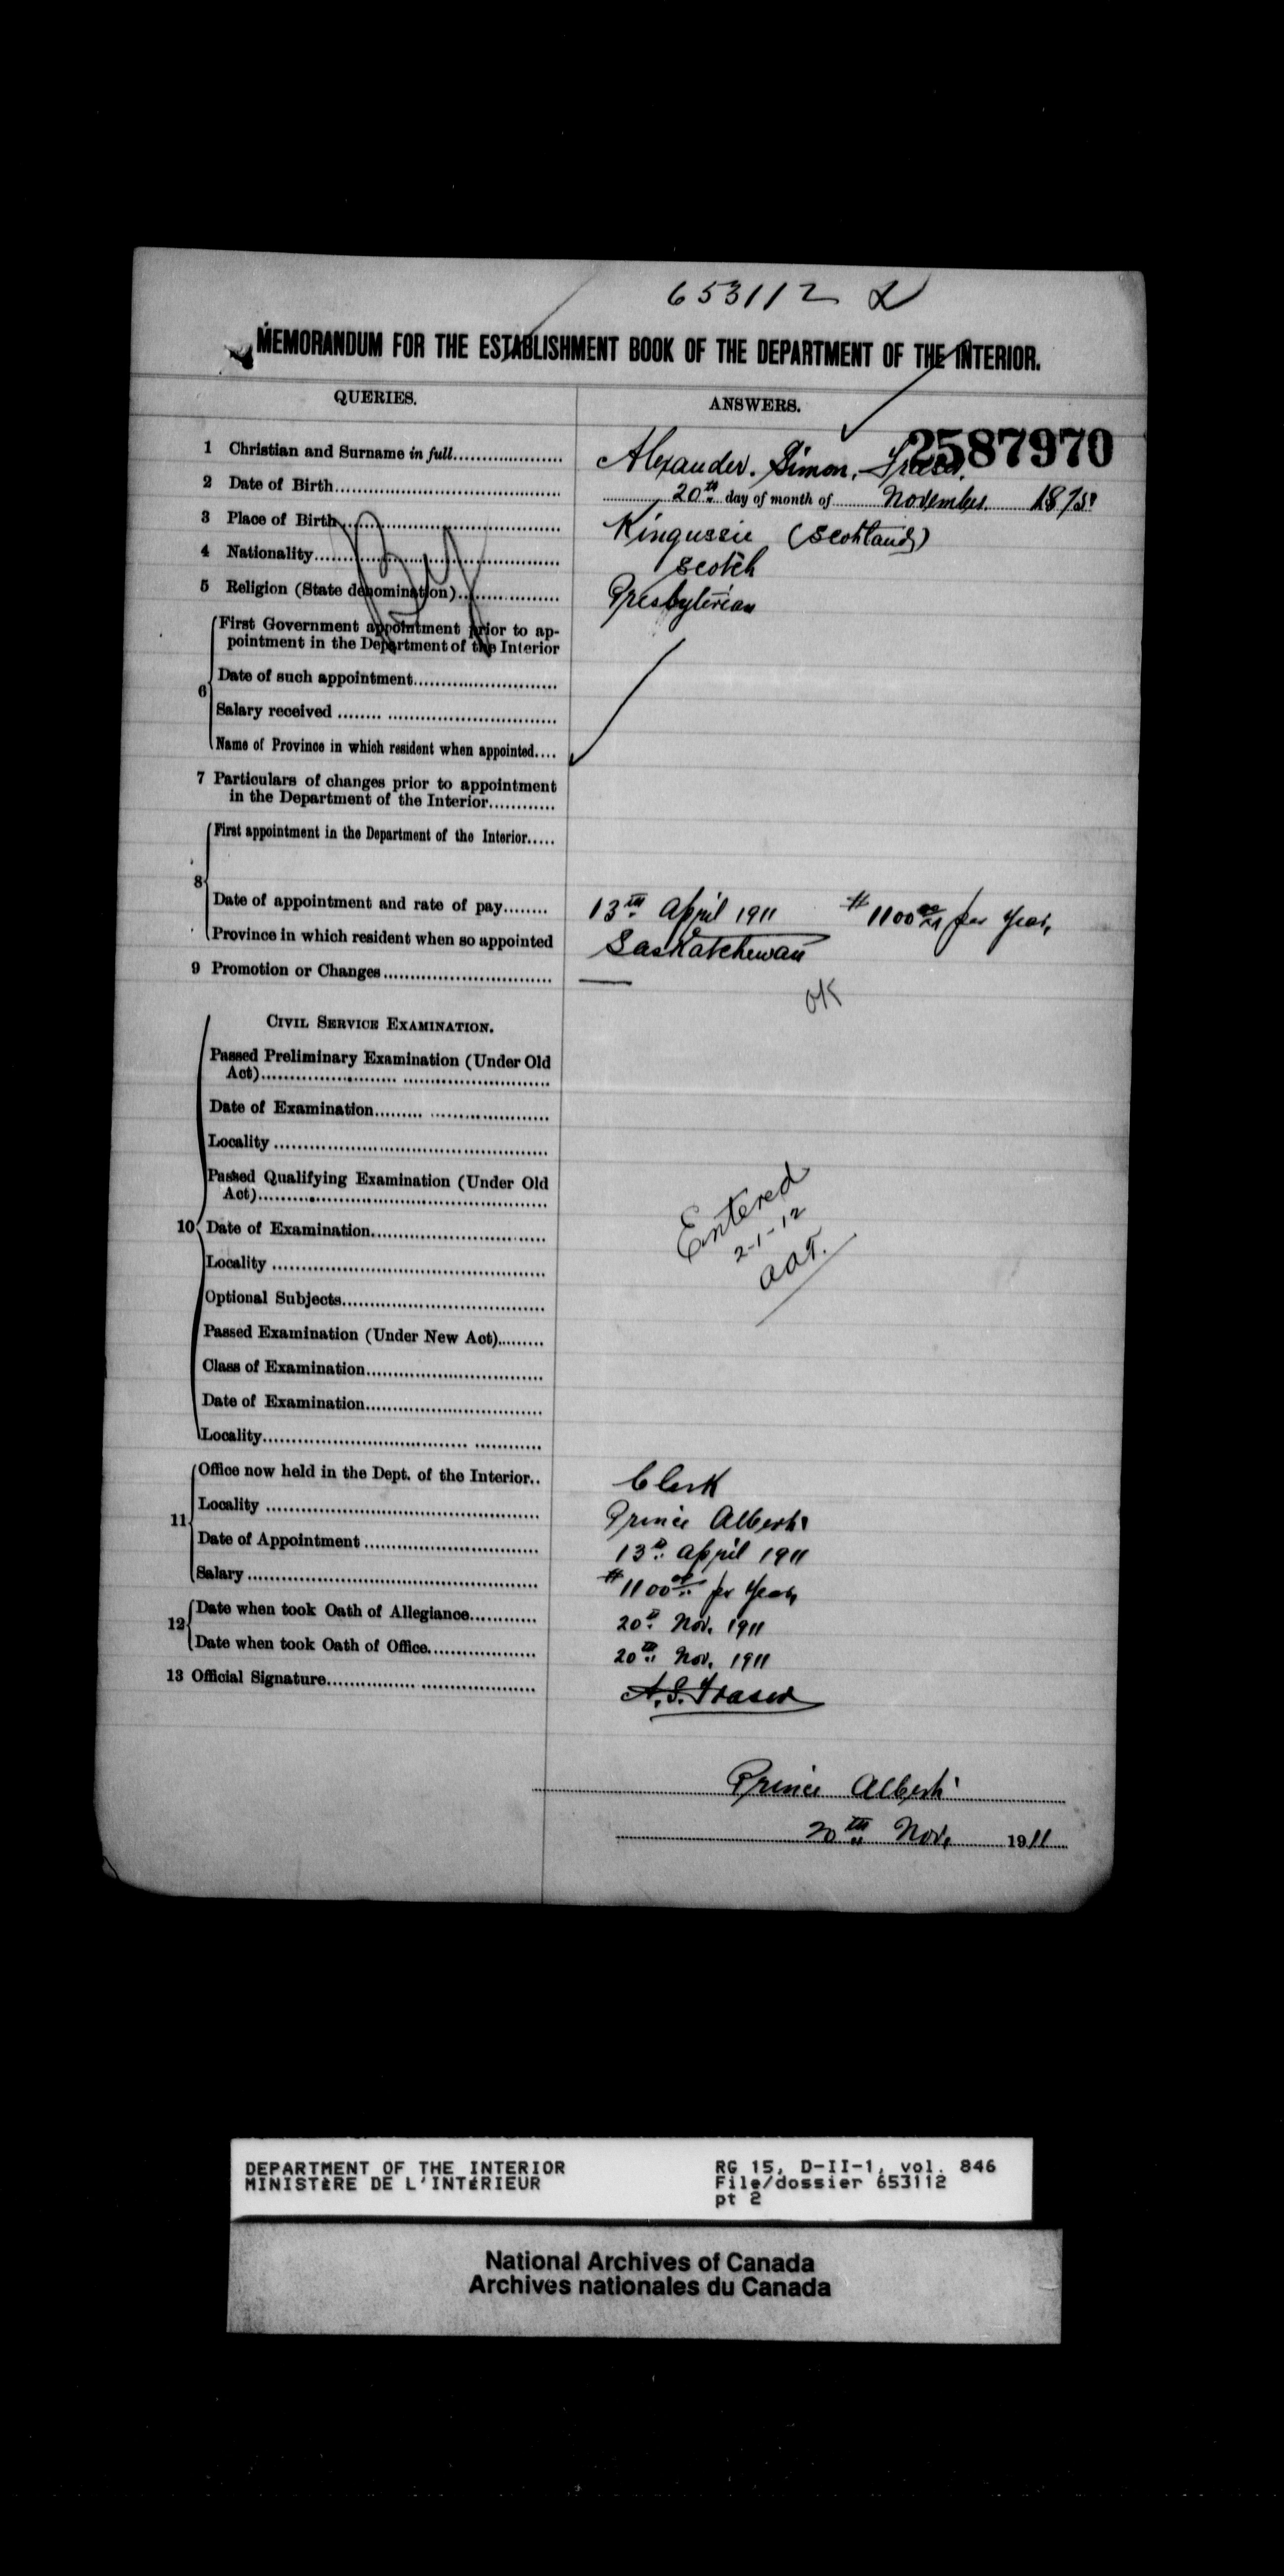 653112
MEMORANDUM FOR THE ESTABLISHMENT BOOK OF THE DEPARTMENT OF THE INTERIOR.
QUERIES. ANSWERS.
2587970
1 Christian and Surname in full Alexander. Simon. Fraser.
2 Date of Birth 20th day of month of November 1875
3 Place of Birth Kingussie (Scotland)
4 Nationality Scotch
5 Religion (State denomination) Presbyterian
6 First Government appointment prior to ap-
pointment in the Department of the Interior
Date of such appointment
Salary received
Name of Province in which resident when appointed
7 Particulars of changes prior to appointment
in the Department of the Interior
8 First appointment in the Department of the Interior
Date of appointment and rate of pay 13th April 1911 $1100 00 per year,
Province in which resident when so appointed Saskatchewan
9 Promotion or Changes —
OK
CIVIL SERVICE EXAMINATION.
10 Passed Preliminary Examination (Under Old
Act)
Date of Examination
Locality
Passed Qualifying Examination (Under Old
Act)
Entered
2-1-12
Date of Examination
Locality
Optional Subjects
Passed Examination (Under New Act)
Class of Examination
Date of Examination
Locality
11 Office now held in the Dept. of the Interior Clerk
Locality Prince Albert
Date of Appointment 13th April 1911
Salary $1100 00 per year,
12 Date when took Oath of Allegiance 20th Nov. 1911
Date when took Oath of Office 20th Nov. 1911
13 Official Signature A. S. Fraser
Prince Albert
20th Nov. 1911
DEPARTMENT OF THE INTERIOR RG 15, D-II-1, vol. 846
MINISTÈRE DE L'INTÉRIEUR File/dossier 653112
pt 2
National Archives of Canada
Archives nationales du Canada